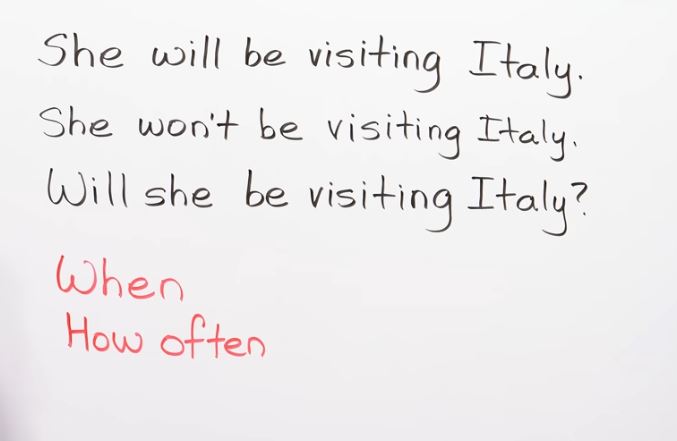 She will be visiting Italy.
She won't be visiting Italy.
Will she be visiting Italy?
When
How often